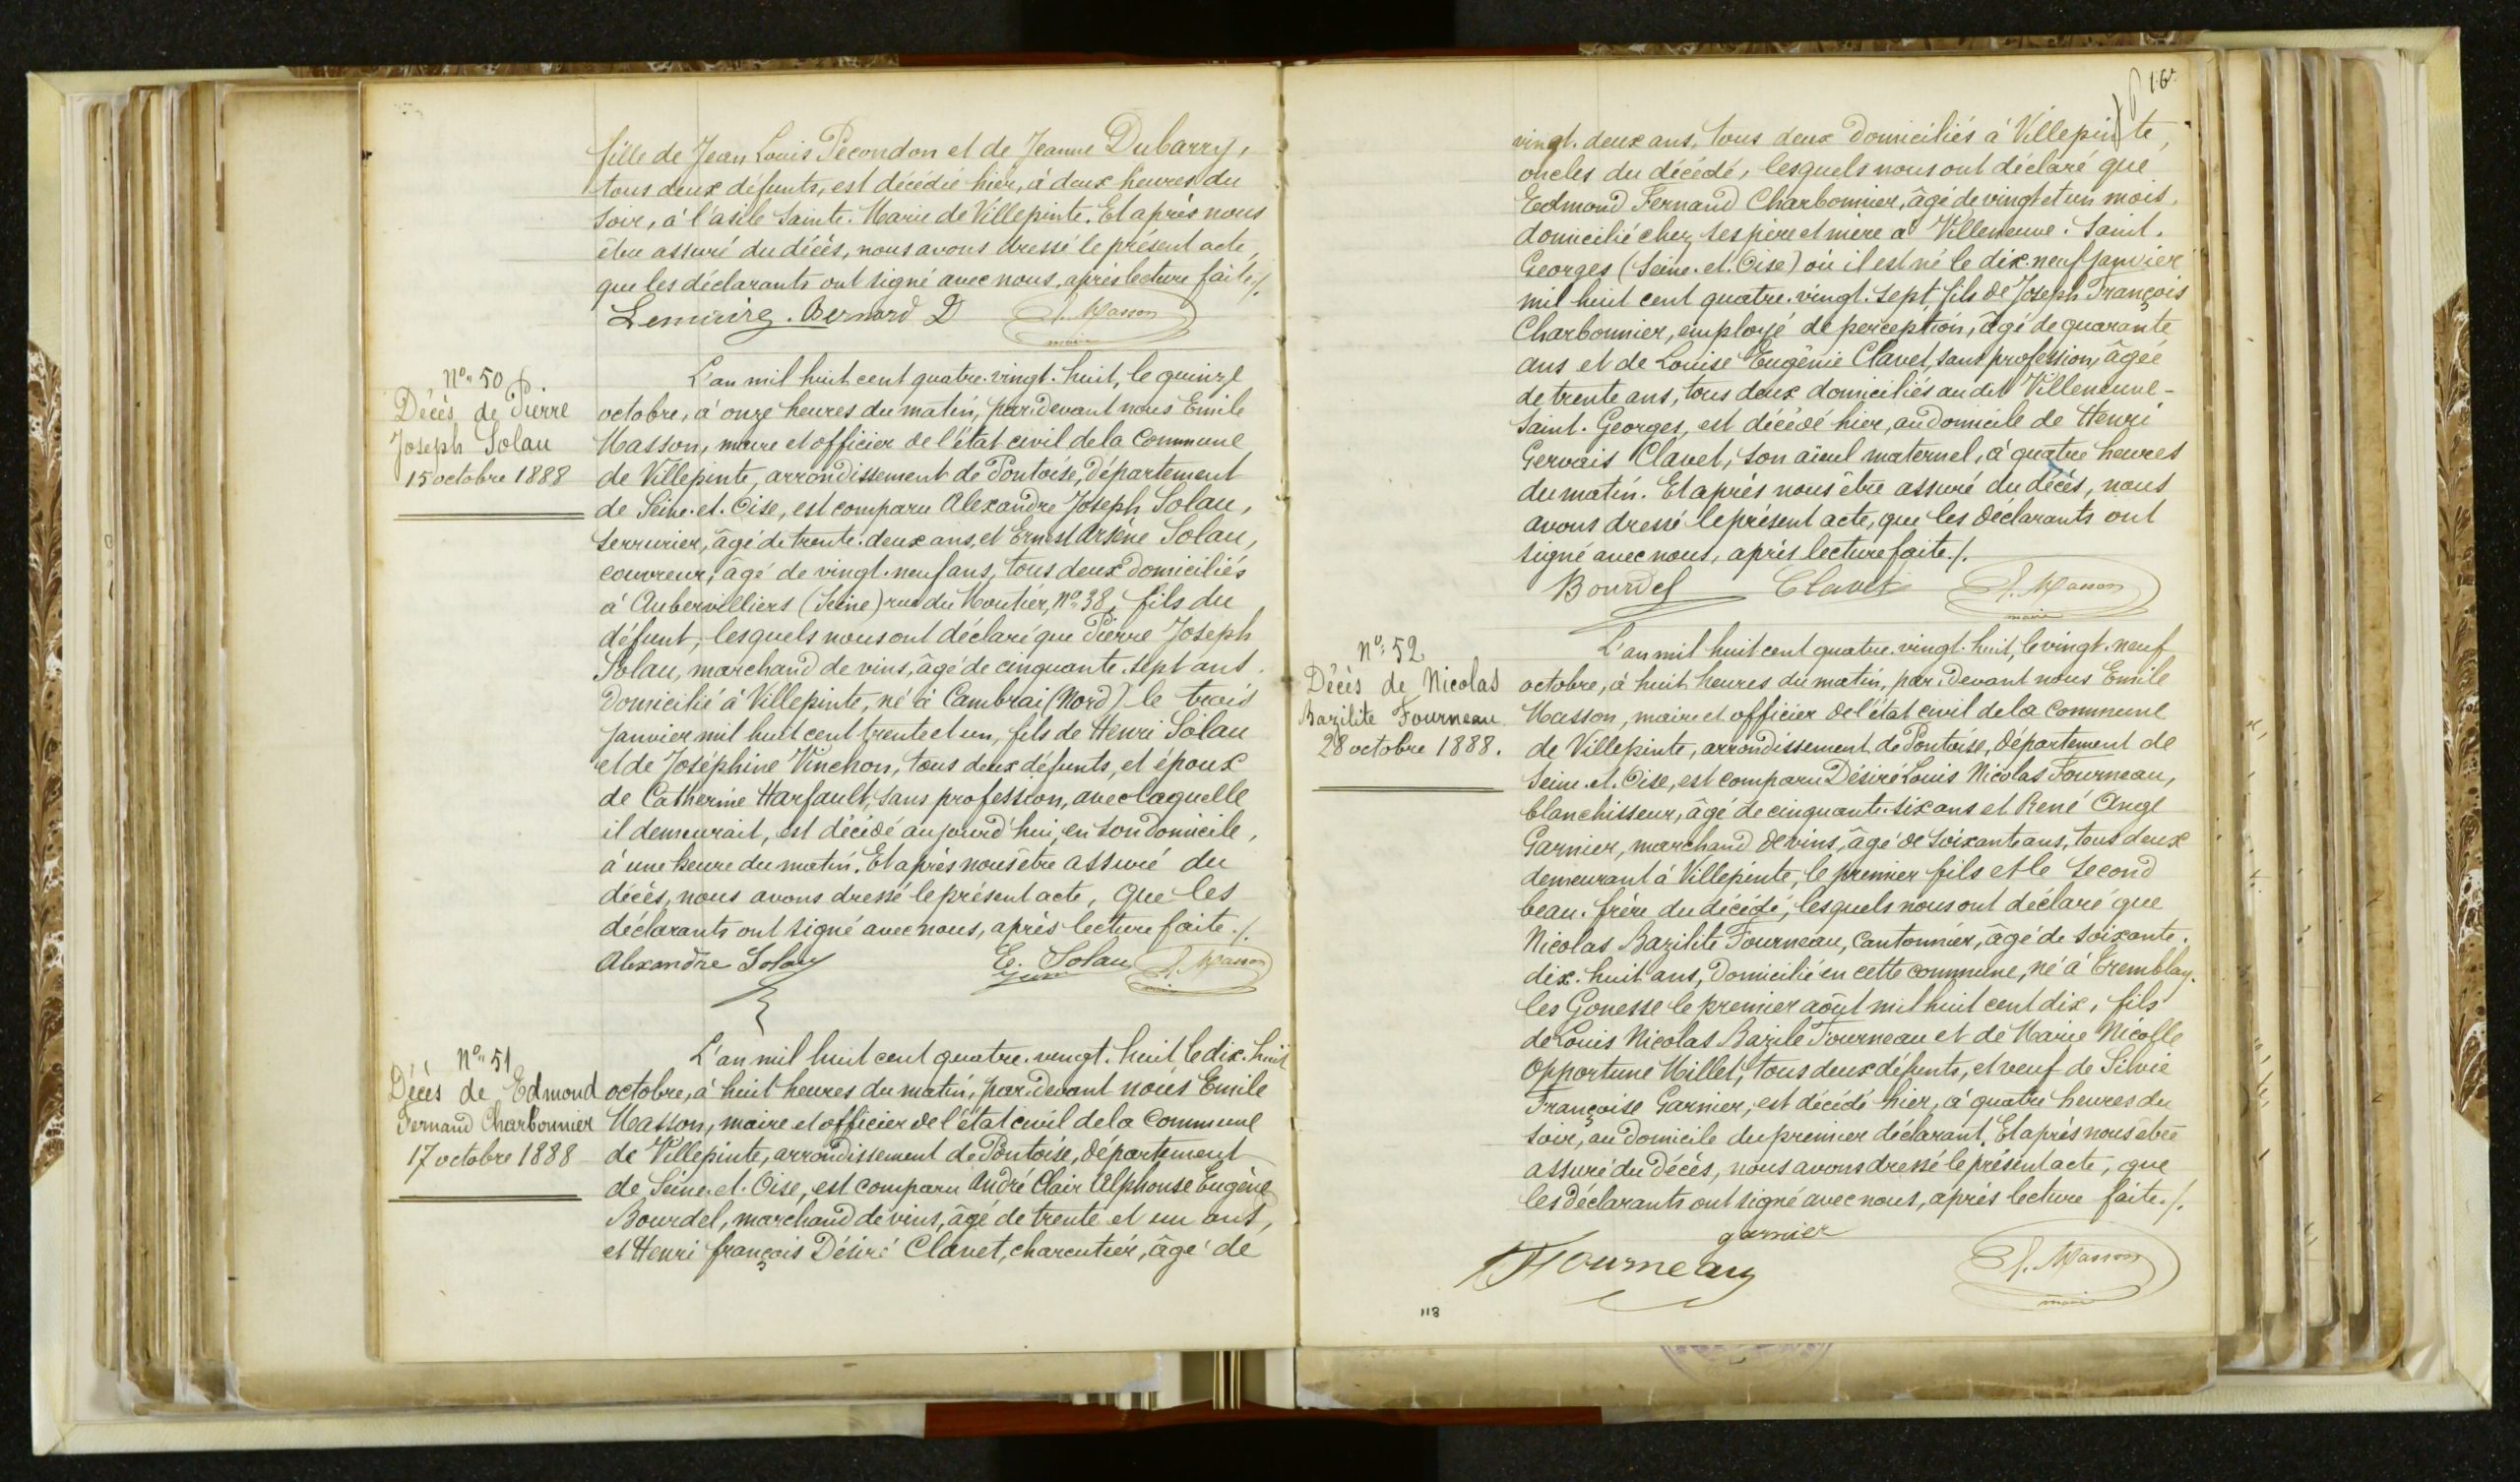 fille de Jean Louis Pécondon et de Jeanne Dubarry,
tous deux défunts, est décédée hier, à deux heures du
soir, à l'asile Sainte-Marie de Villepinte. Et après nous
être assuré du décès, nous avons dressé le présent acte,
que les déclarants ont signé avec nous, après lecture faite ./.
Lemaire. Bernard D E. Masson
maire
N° 50
Décès de Pierre
Joseph Solau
15 octobre 1888
L'an mil huit cent quatre-vingt-huit, le quinze
octobre, à onze heures du matin, par-devant nous Emile
Masson, maire et officier de l'état civil de la commune
de Villepinte, arrondissement de Pontoise, département
de Seine-et-Oise, est comparu Alexandre Joseph Solau,
serrurier, âgé de trente-deux ans, et Ernest Arsène Solau,
couvreur, âgé de vingt-neuf ans, tous deux domiciliés
à Aubervilliers (Seine) rue du Moutier, N° 38, fils du
défunt, lesquels nous ont déclaré que Pierre Joseph
Solau, marchand de vins, âgé de cinquante-sept ans.
domicilié à Villepinte, né à Cambrai (Nord) le trois
janvier mil huit cent trente et un, fils de Henri Solau
et de Joséphine Vinchon, tous deux défunts, et époux
de Catherine Harfault, sans profession, avec laquelle
il demeurait, est décédé aujourd'hui, en son domicile,
à une heure du matin. Et après nous être assuré du
décès, nous avons dressé le présent acte, que les
déclarants ont signé avec nous, après lecture faite ./.
Alexandre Solau E. Solau E. Masson
maire
N° 51
Décès de Edmond
Fernand Charbonnier
17 octobre 1888
L'an mil huit cent quatre-vingt-huit, le dix-huit
octobre, à huit heures du matin, par-devant nous Emile
Masson, maire et officier de l'état civil de la commune
de Villepinte, arrondissement de Pontoise, département
de Seine-et-Oise, est comparu André Clair Alphonse Eugène
Bourdel, marchand de vins, âgé de trente et un ans,
et Henri françois Désiré Clavet, charcutier, âgé de
16
vingt-deux ans, tous deux domiciliés à Villepinte,
oncles du décédé, lesquels nous ont déclaré que
Edmond Fernand Charbonnier, âgé de vingt et un mois,
domicilié chez ses père et mère à Villeneuve-Saint-
Georges (Seine-et-Oise) où il est né le dix-neuf janvier
mil huit cent quatre-vingt-sept, fils de Joseph François
Charbonnier, employé de perception, âgé de quarante
ans et de Louise Eugénie Clavet, sans profession, âgée
de trente ans, tous deux domiciliés audit Villeneuve-
Saint-Georges, est décédé hier, au domicile de Henri
Gervais Clavet, son aïeul maternel, à quatre heures
du matin. Et après nous être assuré du décès, nous
avons dressé le présent acte, que les déclarants ont
signé avec nous, après lecture faite ./.
Bourdel Clavet E. Masson
maire
N° 52
Décès de Nicolas
Bazilite Fourneau
28 octobre 1888.
L'an mil huit cent quatre-vingt-huit, le vingt-neuf
octobre, à huit heures du matin, par-devant nous Emile
Masson, maire et officier de l'état civil de la commune
de Villepinte, arrondissement de Pontoise, département de
Seine-et-Oise, est comparu Désiré Louis Nicolas Fourneau,
blanchisseur, âgé de cinquante-six ans et René Ange
Garnier, marchand de vins, âgé de soixante ans, tous deux
demeurant à Villepinte, le premier fils et le second
beau-frère du décédé, lesquels nous ont déclaré que
Nicolas Bazilite Fourneau, cantonnier, âgé de soixante-
dix-huit ans, domicilié en cette commune, né à Tremblay-
les Gonesse le premier août mil huit cent dix, fils
de Louis Nicolas Bazile Fourneau et de Marie Nicolle
Opportune Millet, tous deux défunts, et veuf de Silvie
Françoise Garnier, est décédé hier, à quatre heures du
soir, au domicile du premier déclarant. Et après nous être
assuré du décès, nous avons dressé le présent acte, que
les déclarants ont signé avec nous, après lecture faite ./.
garnier
Fourneau E. Masson
maire
118